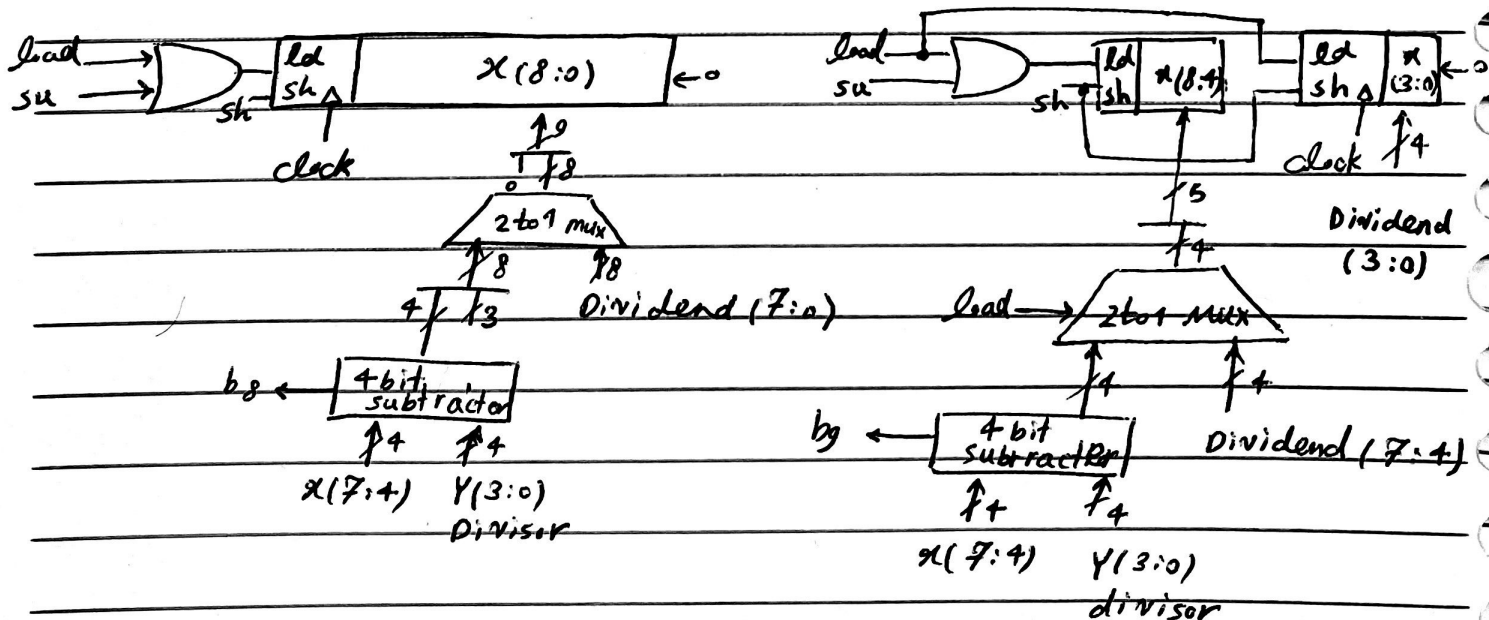 load
su
ld
sh
sh
x(8:0)
←0
clock
9
8
0
2 to 1 mux
8
8
4
3
Dividend (7:0)
4 bit
subtractor
4
4
x(7:4)
Y(3:0)
Divisor
load
su
sh
ld
sh
x(8:4)
ld
sh
x
(3:0)
←0
clock
4
5
4
Dividend
(3:0)
load
2 to 1 MUX
4
4
Dividend (7:4)
4 bit
subtractor
4
4
x(7:4)
Y(3:0)
divisor